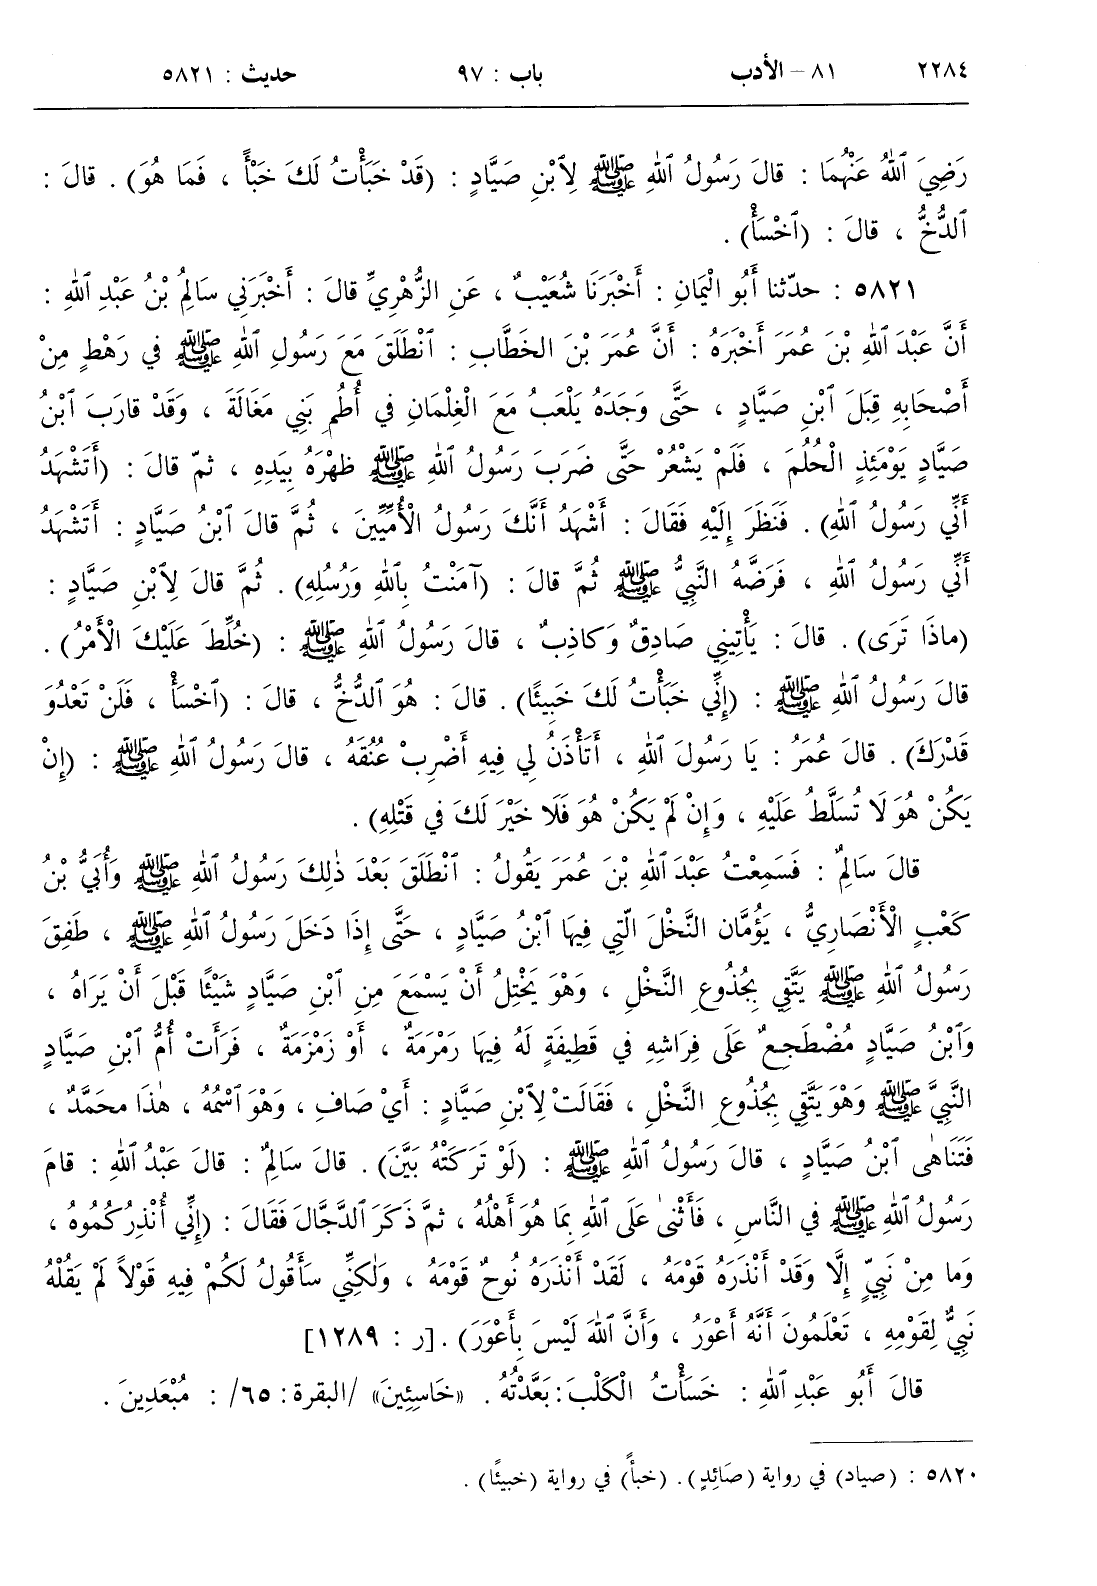 ٢٢٨٤ ٨١ – الأدب باب : ٩٧ حديث : ٥٨٢١
رَضِيَ ٱللهُ عَنْهُمَا : قالَ رَسُولُ ٱللهِ ﷺ لِٱبْنِ صَيَّادٍ : (قَدْ خَبَأْتُ لَكَ خَبْأً ، فَمَا هُوَ) . قالَ :
ٱلدُّخُّ ، قالَ : (ٱخْسَأْ) .
٥٨٢١ : حدّثنا أَبُو الْيَمَانِ : أَخْبَرَنَا شُعَيْبٌ ، عَنِ الزُّهْرِيِّ قالَ : أَخْبَرَنِي سَالِمُ بْنُ عَبْدِ ٱللهِ :
أَنَّ عَبْدَ ٱللهِ بْنَ عُمَرَ أَخْبَرَهُ : أَنَّ عُمَرَ بْنَ الخَطَّابِ : ٱنْطَلَقَ مَعَ رَسُولِ ٱللهِ ﷺ في رَهْطٍ مِنْ
أَصْحَابِهِ قِبَلَ ٱبْنِ صَيَّادٍ ، حَتَّى وَجَدَهُ يَلْعَبُ مَعَ الْغِلْمَانِ في أُطُمِ بَنِي مَغَالَةَ ، وَقَدْ قارَبَ ٱبْنُ
صَيَّادٍ يَوْمَئِذٍ الْحُلُمَ ، فَلَمْ يَشْعُرْ حَتَّى ضَرَبَ رَسُولُ ٱللهِ ﷺ ظَهْرَهُ بِيَدِهِ ، ثمّ قالَ : (أَتَشْهَدُ
أَنِّي رَسُولُ ٱللهِ) . فَنَظَرَ إِلَيْهِ فَقَالَ : أَشْهَدُ أَنَّكَ رَسُولُ الْأُمِّيِّينَ ، ثُمَّ قالَ ٱبْنُ صَيَّادٍ : أَتَشْهَدُ
أَنِّي رَسُولُ ٱللهِ ، فَرَضَّهُ النَّبِيُّ ﷺ ثُمَّ قالَ : (آمَنْتُ بِٱللهِ وَرُسُلِهِ) . ثُمَّ قالَ لِٱبْنِ صَيَّادٍ :
(ماذَا تَرَى) . قالَ : يَأْتِينِي صَادِقٌ وَكاذِبٌ ، قالَ رَسُولُ ٱللهِ ﷺ : (خُلِّطَ عَلَيْكَ الْأَمْرُ) .
قالَ رَسُولُ ٱللهِ ﷺ : (إِنِّي خَبَأْتُ لَكَ خَبِيئًا) . قالَ : هُوَ ٱلدُّخُّ ، قالَ : (ٱخْسَأْ ، فَلَنْ تَعْدُوَ
قَدْرَكَ) . قالَ عُمَرُ : يَا رَسُولَ ٱللهِ ، أَتَأْذَنُ لِي فِيهِ أَضْرِبْ عُنُقَهُ ، قالَ رَسُولُ ٱللهِ ﷺ : (إِنْ
يَكُنْ هُوَ لَا تُسَلَّطُ عَلَيْهِ ، وَإِنْ لَمْ يَكُنْ هُوَ فَلَا خَيْرَ لَكَ في قَتْلِهِ) .
قالَ سَالِمٌ : فَسَمِعْتُ عَبْدَ ٱللهِ بْنَ عُمَرَ يَقُولُ : ٱنْطَلَقَ بَعْدَ ذٰلِكَ رَسُولُ ٱللهِ ﷺ وَأُبَيُّ بْنُ
كَعْبٍ الْأَنْصَارِيُّ ، يَؤُمَّان النَّخْلَ الَّتِي فِيهَا ٱبْنُ صَيَّادٍ ، حَتَّى إِذَا دَخَلَ رَسُولُ ٱللهِ ﷺ ، طَفِقَ
رَسُولُ ٱللهِ ﷺ يَتَّقِي بِجُذُوعِ النَّخْلِ ، وَهْوَ يَخْتِلُ أَنْ يَسْمَعَ مِنِ ٱبْنِ صَيَّادٍ شَيْئًا قَبْلَ أَنْ يَرَاهُ ،
وَٱبْنُ صَيَّادٍ مُضْطَجِعٌ عَلَى فِرَاشِهِ في قَطِيفَةٍ لَهُ فِيهَا رَمْرَمَةٌ ، أَوْ زَمْزَمَةٌ ، فَرَأَتْ أُمُّ ٱبْنِ صَيَّادٍ
النَّبِيَّ ﷺ وَهْوَ يَتَّقِي بِجُذُوعِ النَّخْلِ ، فَقَالَتْ لِٱبْنِ صَيَّادٍ : أَيْ صَافِ ، وَهْوَ ٱسْمُهُ ، هٰذَا محَمَّدٌ ،
فَتَنَاهٰى ٱبْنُ صَيَّادٍ ، قالَ رَسُولُ ٱللهِ ﷺ : (لَوْ تَرَكَتْهُ بَيَّنَ) . قالَ سَالِمٌ : قالَ عَبْدُ ٱللهِ : قامَ
رَسُولُ ٱللهِ ﷺ في النَّاسِ ، فَأَثْنىٰ عَلَى ٱللهِ بِمَا هُوَ أَهْلُهُ ، ثمَّ ذَكَرَ ٱلدَّجَّالَ فَقَالَ : (إِنِّي أُنْذِرُكُمُوهُ ،
وَما مِنْ نَبِيٍّ إِلَّا وَقَدْ أَنْذَرَهُ قَوْمَهُ ، لَقَدْ أَنْذَرَهُ نُوحٌ قَوْمَهُ ، وَلٰكِنِّي سَأَقُولُ لَكُمْ فِيهِ قَوْلاً لَمْ يَقُلْهُ
نَبِيٌّ لِقَوْمِهِ ، تَعْلَمُونَ أَنَّهُ أَعْوَرُ ، وَأَنَّ ٱللهَ لَيْسَ بِأَعْوَرَ) . [ر : ١٢٨٩]
قالَ أَبُو عَبْدِ ٱللهِ : خَسَأْتُ الْكَلْبَ : بَعَّدْتُهُ . «خَاسِئِينَ» /البقرة : ٦٥/ : مُبْعَدِينَ .
٥٨٢٠ : (صياد) في رواية (صَائِدٍ) . (خبأً) في رواية (خبيئًا) .